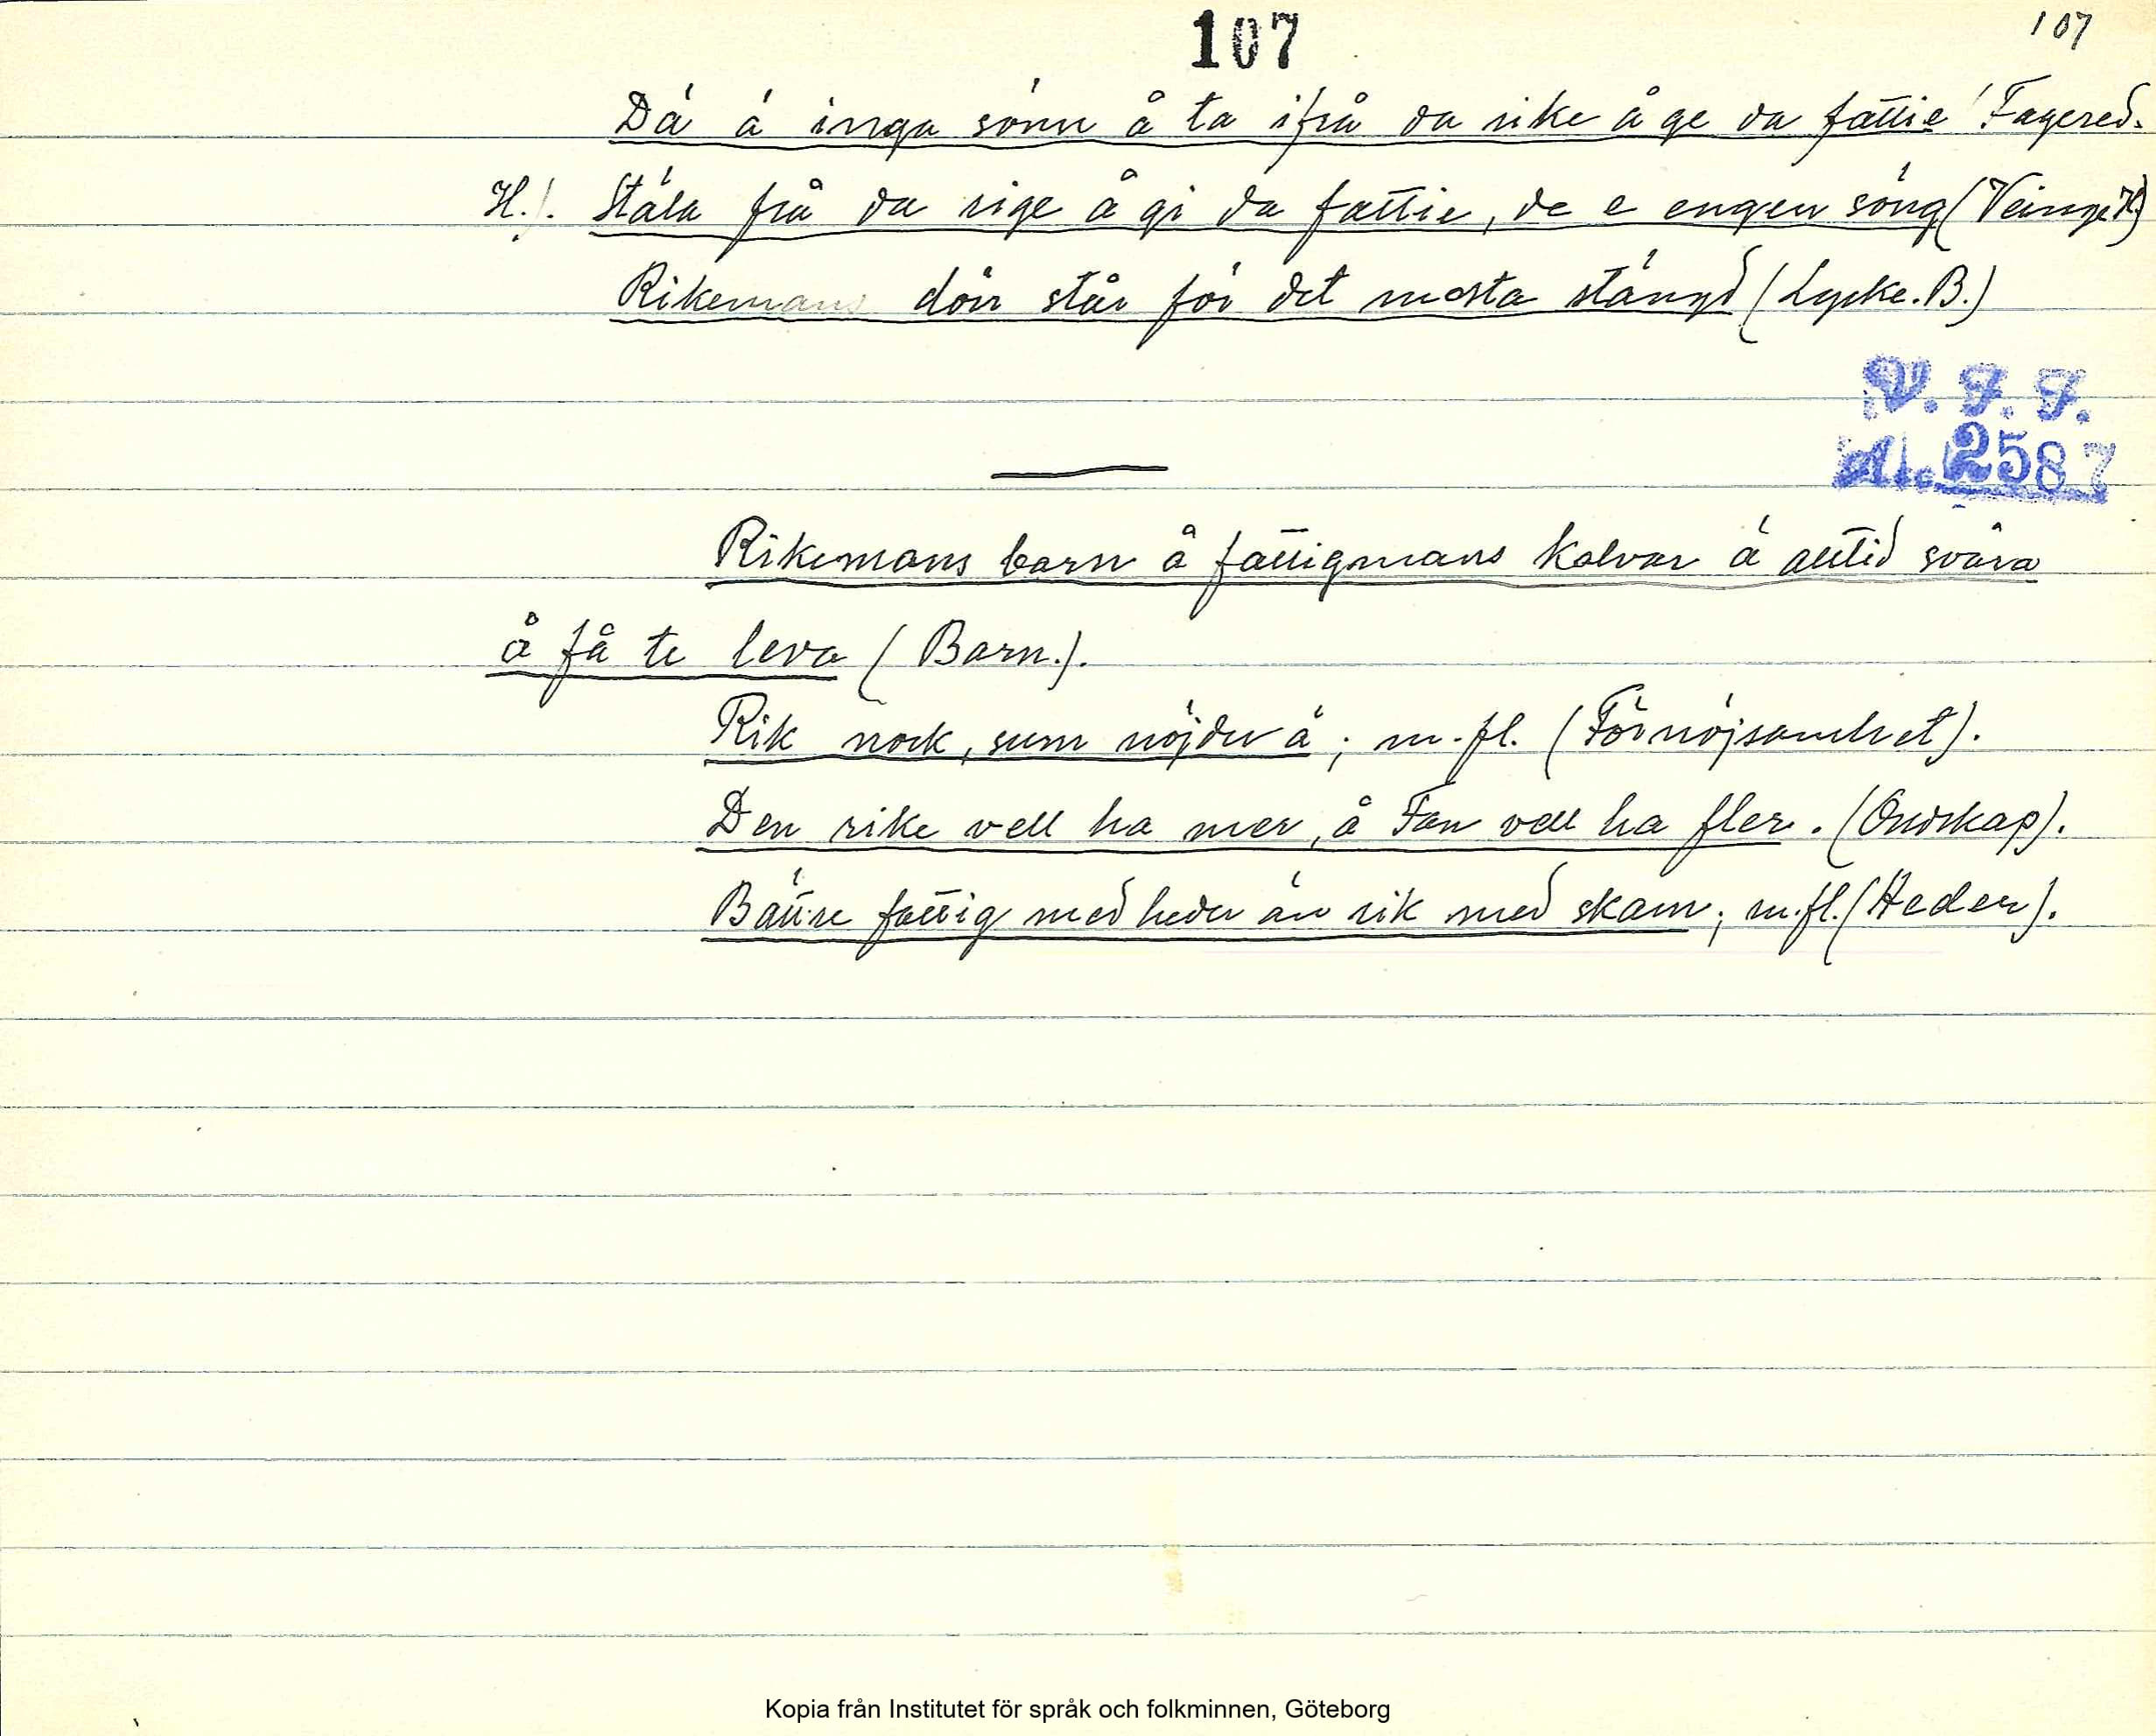 107
107
Dä ä inga sönn å ta ifrå da rike å ge da fattie (Fagered.
H.). Stäla frå da rige å gi da fattie, de e engen söng (Veinge H.)
Rikemans dörr står för det mesta stängd (Lycke. B.)
V. F. F.
Acc 2587
Rikemans barn å fattigmans kalvar ä alltid svåra
å få te leva (Barn.).
Rik nock, sum nöjder ä; m.fl. (Förnöjsamhet).
Den rike vell ha mer, å Fan vell ha fler. (Ondskap).
Bättre fattig med heder än rik med skam; m.fl. (Heder).
Kopia från Institutet för språk och folkminnen, Göteborg